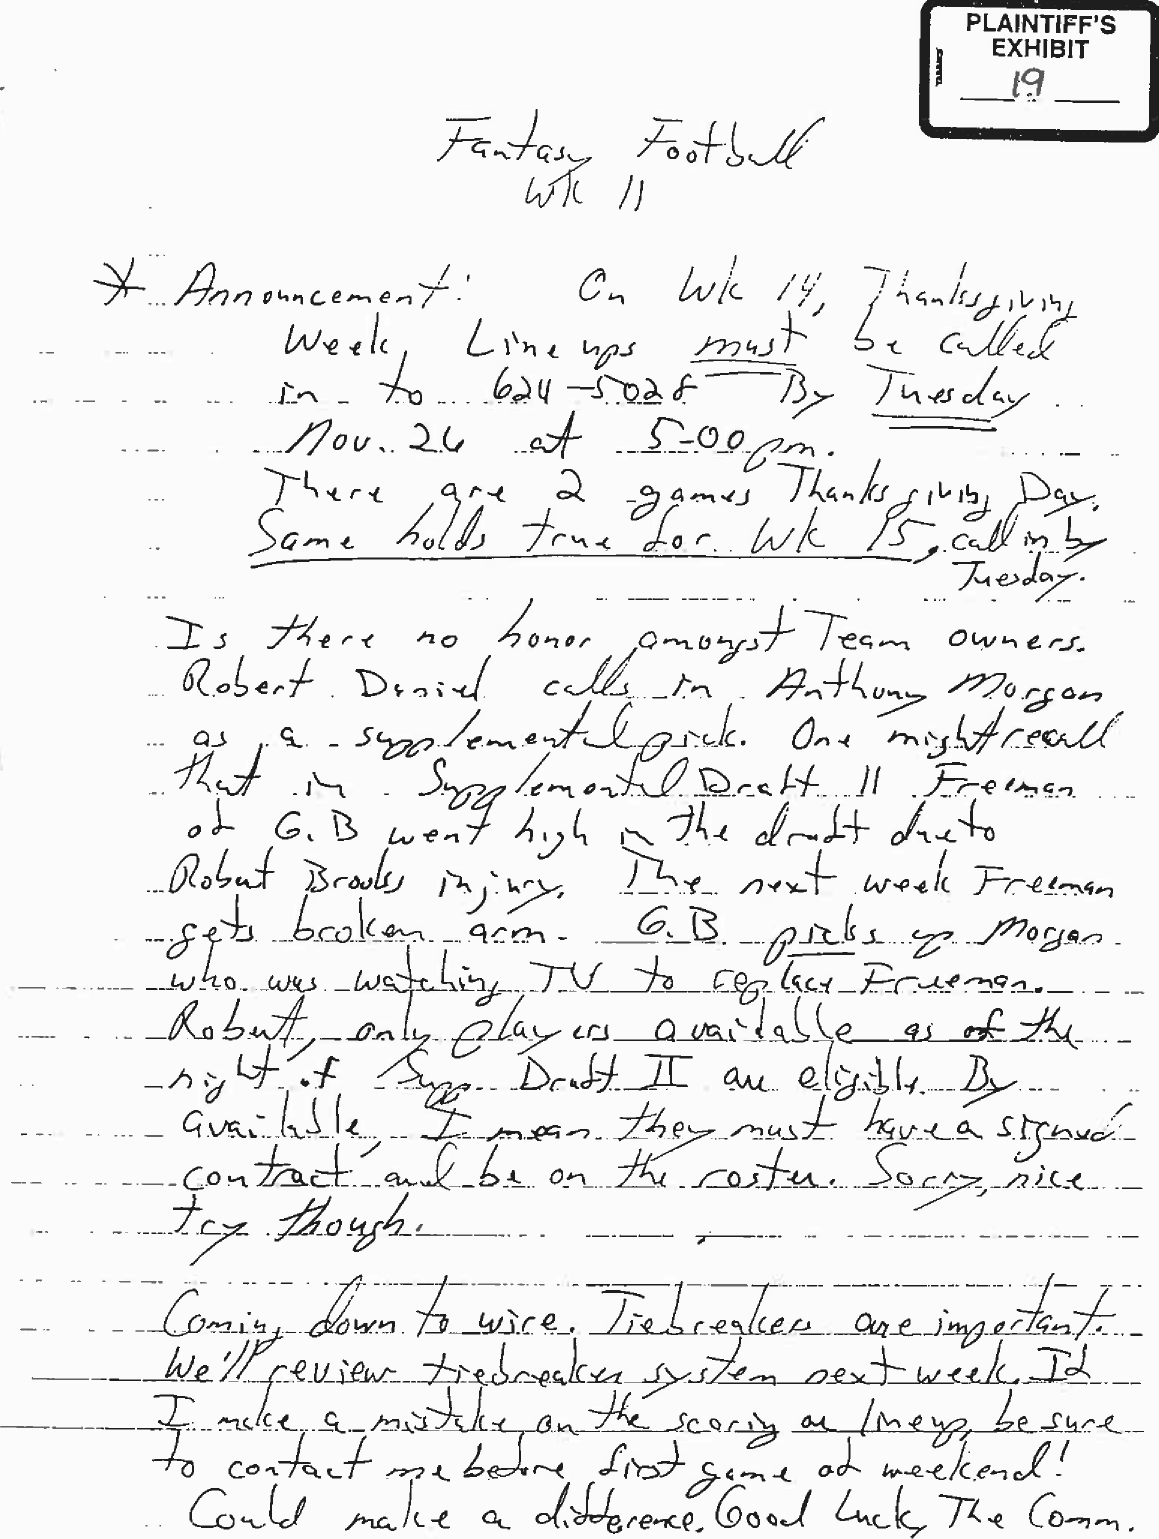 PLAINTIFF'S
EXHIBIT
19
Fantasy Football
WK 11
* Announcement: On Wk 14, Thanksgiving
Week, Line ups must be called
in to 624-5028 By Tuesday
Nov. 26 at 5-00 pm.
There are 2 games Thanksgiving Day.
Same holds true for Wk 15, call in by
Tuesday.
Is there no honor amongst Team owners.
Robert Daniel calls in Anthony Morgan
as a supplemental pick. One might recall
that in Supplemental Draft II Freeman
of G.B went high in the draft due to
Robert Brooks injury. The next week Freeman
gets broken arm. G.B. picks up Morgan
who was watching TV to replace Freeman.
Robert, only players available as of the
night of Supp. Draft II are eligible. By
available, I mean they must have a signed
contract and be on the roster. Sorry, nice
try though.
Coming down to wire. Tiebreakers are important.
We'll review tiebreaker system next week. If
I make a mistake on the scoring or lineup, be sure
to contact me before first game of weekend!
Could make a difference. Good Luck, The Comm.